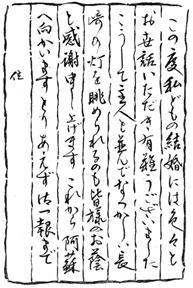 この度私どもの結婚には色々と
お世話いただき有難うございました
こうして主人と並んでなつかしい長
崎の灯を眺められるのも皆様のお蔭
と感謝申し上げます これから阿蘇
へ向かいます とりあえず御一報まで